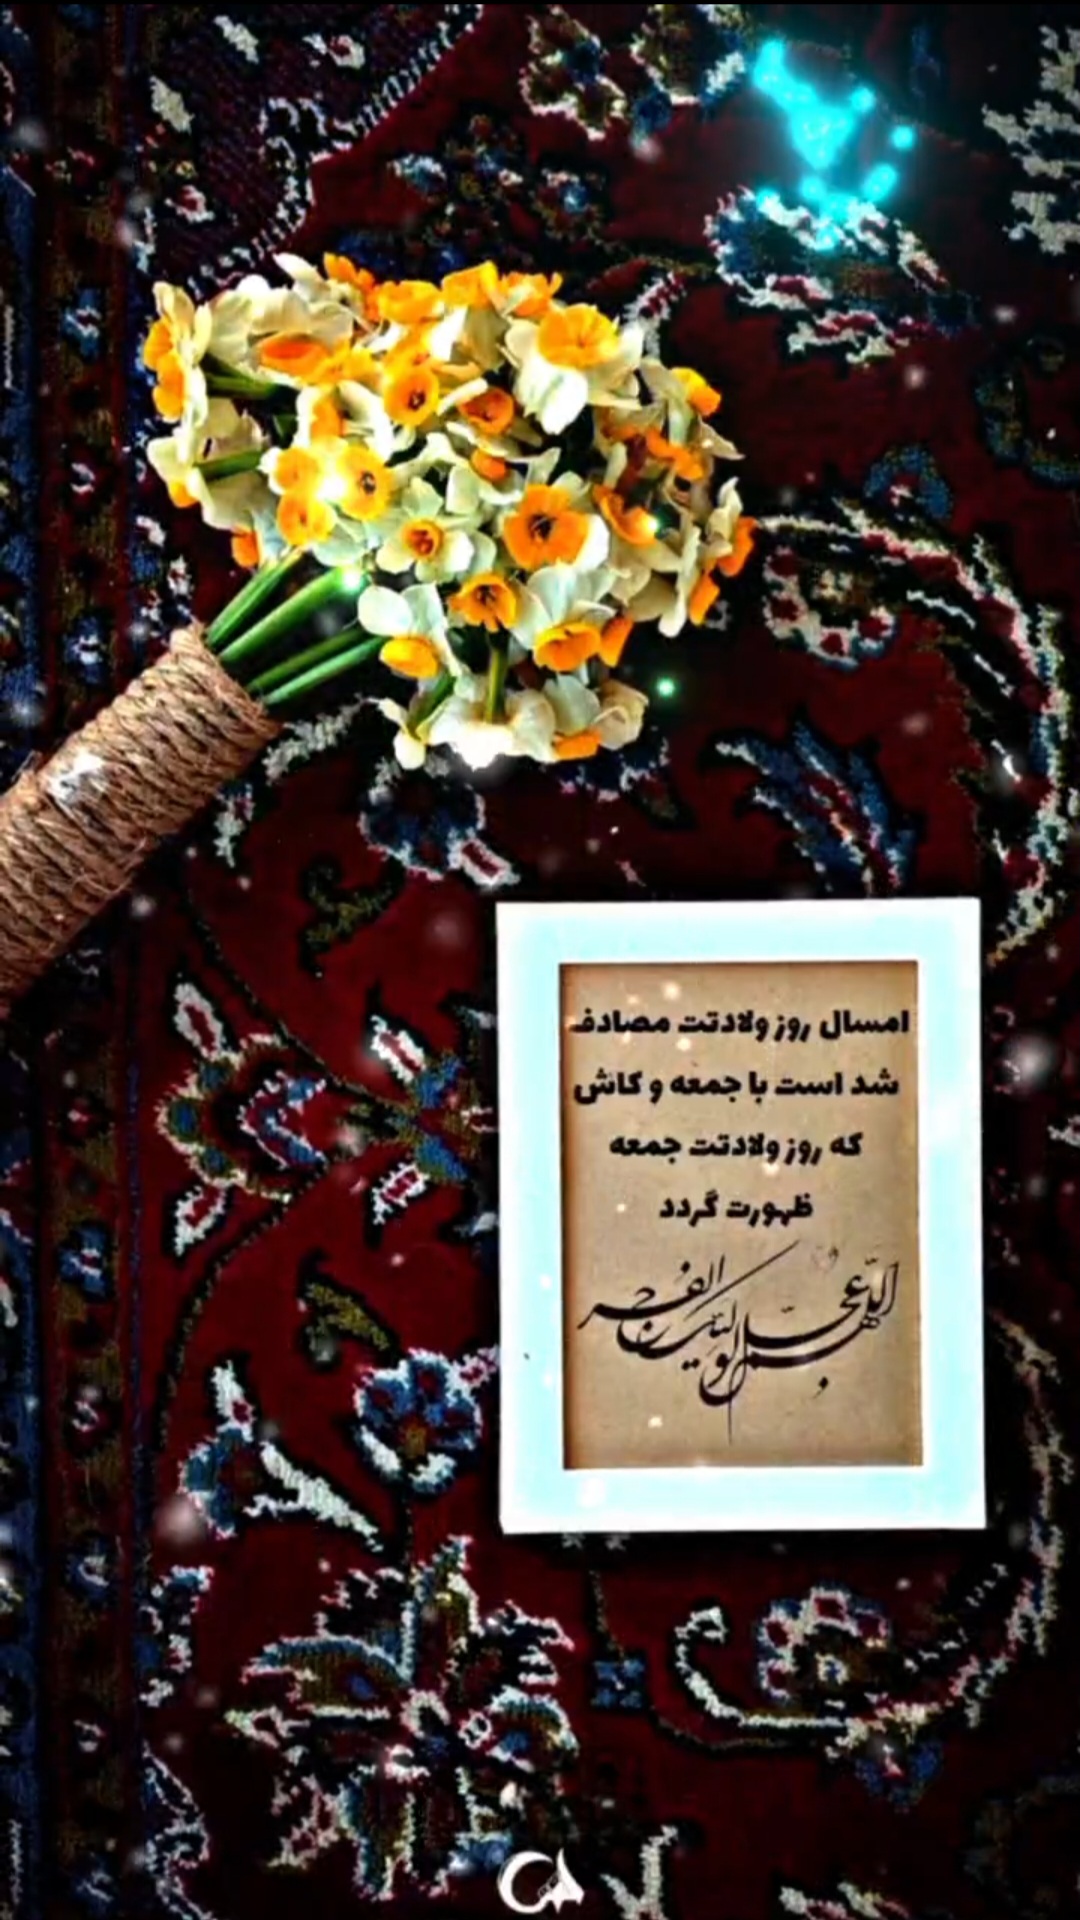 امسال روز ولادتت مصادف
شد است با جمعه و کاش
که روز ولادتت جمعه
ظهورت گردد
اللهم عجل لولیک الفرج